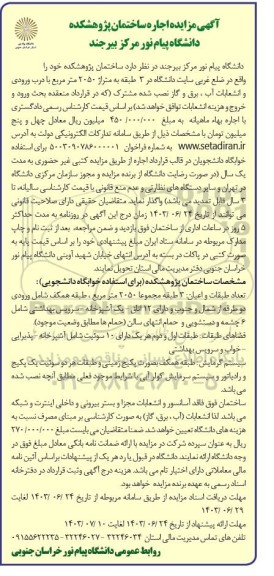 آگهی مزایده اجاره ساختمان پژوهشکده
دانشگاه پیام نور مرکز بیرجند
دانشگاه پیام نور مرکز بیرجند در نظر دارد ساختمان پژوهشکده خود را
واقع در ضلع غربی سایت دانشگاه در ۳ طبقه به متراژ ۲۰۵۰ متر مربع با درب ورودی
و انشعابات آب ، برق و گاز نصب شده مشترک (که در قرارداد منعقده بحث ورود و
خروج و هزینه انشعابات توافق خواهد شد) بر اساس قیمت کارشناس رسمی دادگستری
با اجاره بهاء ماهیانه به مبلغ ۴۵۰/۰۰۰/۰۰۰ میلیون ریال معادل چهل و پنج
میلیون تومان با مشخصات ذیل از طریق سامانه تدارکات الکترونیکی دولت به آدرس
www.setadiran.ir به شماره فراخوان ۵۰۰۳۰۹۰۷۸۶۰۰۰۰۰۱ برای استفاده
خوابگاه دانشجویان در قالب قرارداد اجاره از طریق مزایده کتبی غیر حضوری به مدت
یک سال (در صورت رضایت دانشگاه از برنده مزایده و مجوز سازمان مرکزی دانشگاه
در تهران و سایر دستگاه های نظارتی و عدم منع قانونی با قیمت کارشناسی سالیانه، تا
۳ سال قابل تمدید می باشد) واگذار نماید. متقاضیان حقیقی دارای صلاحیت قانونی
می توانند از تاریخ ۱۴۰۳/۰۶/۲۴ زمان درج این آگهی در روزنامه به مدت حداکثر
۵ روز در ساعات اداری از ساختمان فوق بازدید و ضمن مراجعه، بعد از ثبت نام و چاپ
مدارک مربوطه در سامانه ستاد ایران مبلغ پیشنهادی خود را بر اساس قیمت پایه به
صورت کتبی در پاکات در بسته به آدرس انتهای خیابان شهید آوینی دانشگاه پیام نور
خراسان جنوبی دفتر مدیریت مالی استان تحویل نمایند.
مشخصات ساختمان پژوهشکده (برای استفاده خوابگاه دانشجویی):
تعداد طبقات و اعیان: ۳ طبقه مجموعا ۲۰۵۰ متر مربع ، طبقه همکف شامل ورودی
دو طرفه از شمال و جنوب و دارای ۱۲ اتاق ، یک آشپزخانه ، سرویس بهداشتی شامل
۶ چشمه و دستشویی و حمام انتهای سالن (حمام ها مطابق وضعیت موجود)
فضاهای طبقات: طبقات اول و دوم هر یک دارای ۱۰ سوئیت شامل آشپزخانه ، پذیرایی
، خواب و سرویس بهداشتی
سیستم گرمایش: طبقه همکف بصورت پکیج زمینی و طبقات هر دو سوئیت یک پکیج
و رادیاتور و سیستم سرمایش کولر آبی با شرایط موجود فعلی مطابق آنچه نصب شده
می باشد.
ساختمان فوق فاقد آسانسور و انشعابات مجزا و بستر بیرونی و داخلی اینترنت و شبکه
می باشد. لذا انشعابات (آب ، برق، گاز) به صورت کارشناسی بر مبنای مصرف نسبت به
هزینه های دانشگاه تعیین خواهد شد. ضمنا متقاضیان می بایست مبلغ ۲۷۰/۰۰۰/۰۰۰
ریال به عنوان سپرده شرکت در مزایده با ارائه ضمانت نامه بانکی معادل مبلغ فوق در
وجه دانشگاه ارائه نمایند. دانشگاه در قبول یا رد هر یک از پیشنهادات بر اساس آئین نامه
مالی معاملاتی دارای اختیار تام می باشد. هزینه درج آگهی وثبت قرارداد در دفترخانه
اسناد رسمی به عهده برنده مزایده خواهد بود.
مهلت دریافت اسناد مزایده از طریق سامانه مربوطه از تاریخ ۱۴۰۳/۰۶/۲۴ لغایت
۱۴۰۳/۰۶/۲۹
مهلت ارائه پیشنهاد از تاریخ ۱۴۰۳/۰۶/۲۴ لغایت ۱۴۰۳/۰۷/۱۰
تلفن های تماس مدیریت مالی استان ۳۲۲۴۶۰۳۴ -۳۲۲۴۶۰۲۷ -۰۹۱۵۵۶۲۲۲۳۵
روابط عمومی دانشگاه پیام نور خراسان جنوبی